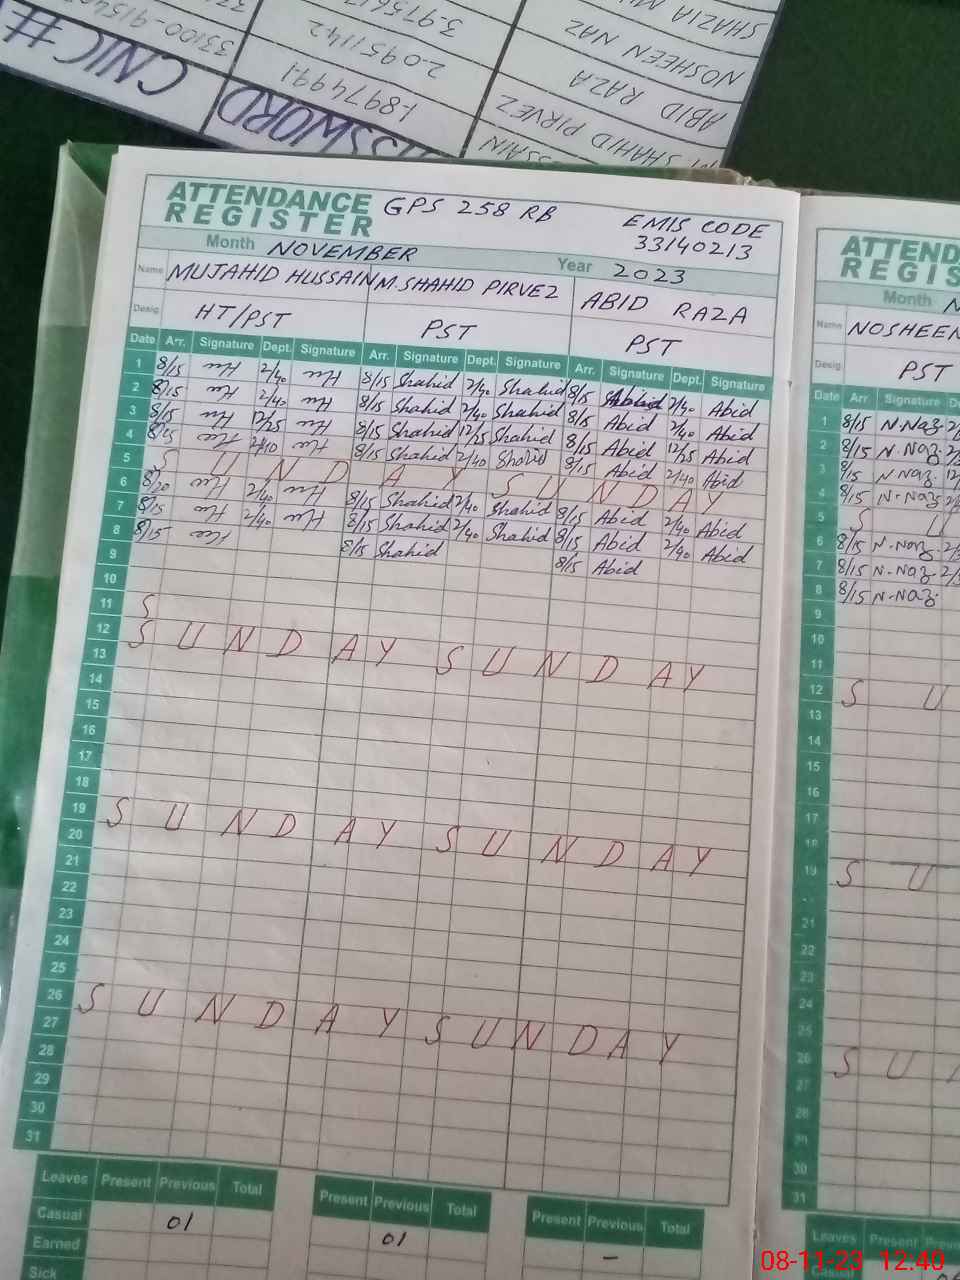 CNIC #
33100-9154
SSWORD
18974991
2.0951142
3.97561
SSAIN
M. SHAHID PIRVEZ
ABID RAZA
NOSHEEN NAZ
SHAZIA
ATTENDANCE REGISTER GPS 258 RB EMIS CODE
33140213
Month NOVEMBER Year 2023
Name MUJAHID HUSSAIN M. SHAHID PIRVEZ ABID RAZA
Desig HT/PST PST PST
Date Arr. Signature Dept. Signature Arr. Signature Dept. Signature Arr. Signature Dept. Signature
1 8/15 2/40 8/15 Shahid 2/40 Shahid 8/15 Abid 2/40 Abid
2 8/15 2/40 8/15 Shahid 2/40 Shahid 8/15 Abid 2/40 Abid
3 8/15 12/25 8/15 Shahid 12/25 Shahid 8/15 Abid 12/25 Abid
4 8/15 2/40 8/15 Shahid 2/40 Shahid 8/15 Abid 2/40 Abid
5 S U N D A Y S U N D A Y
6 8/20 2/40 8/15 Shahid 2/40 Shahid 8/15 Abid 2/40 Abid
7 8/15 2/40 8/15 Shahid 2/40 Shahid 8/15 Abid 2/40 Abid
8 8/15 8/15 Shahid 8/15 Abid
9
10
11 S
12 S U N D A Y S U N D A Y
13
14
15
16
17
18
19 S U N D A Y S U N D A Y
20
21
22
23
24
25
26 S U N D A Y S U N D A Y
27
28
29
30
31
Leaves Present Previous Total Present Previous Total Present Previous Total
Casual 01 01 -
Earned
Sick
ATTEND
REGIS
Month N
Name NOSHEEN
Desig PST
Date Arr Signature De
1 8/15 N.Naz 2/
2 8/15 N.Naz 2/
3 8/15 N.Naz 12/
4 8/15 N.Naz 2/
5 S U
6 8/15 N.Naz 2/3
7 8/15 N.Naz 2/3
8 8/15 N.Naz
9
10
11
12 S U
13
14
15
16
17
18
19 S U
21
22
23
24
25
26 S U
27
28
29
30
31
Leaves Present Previo
Casual
08-11-23 12:40